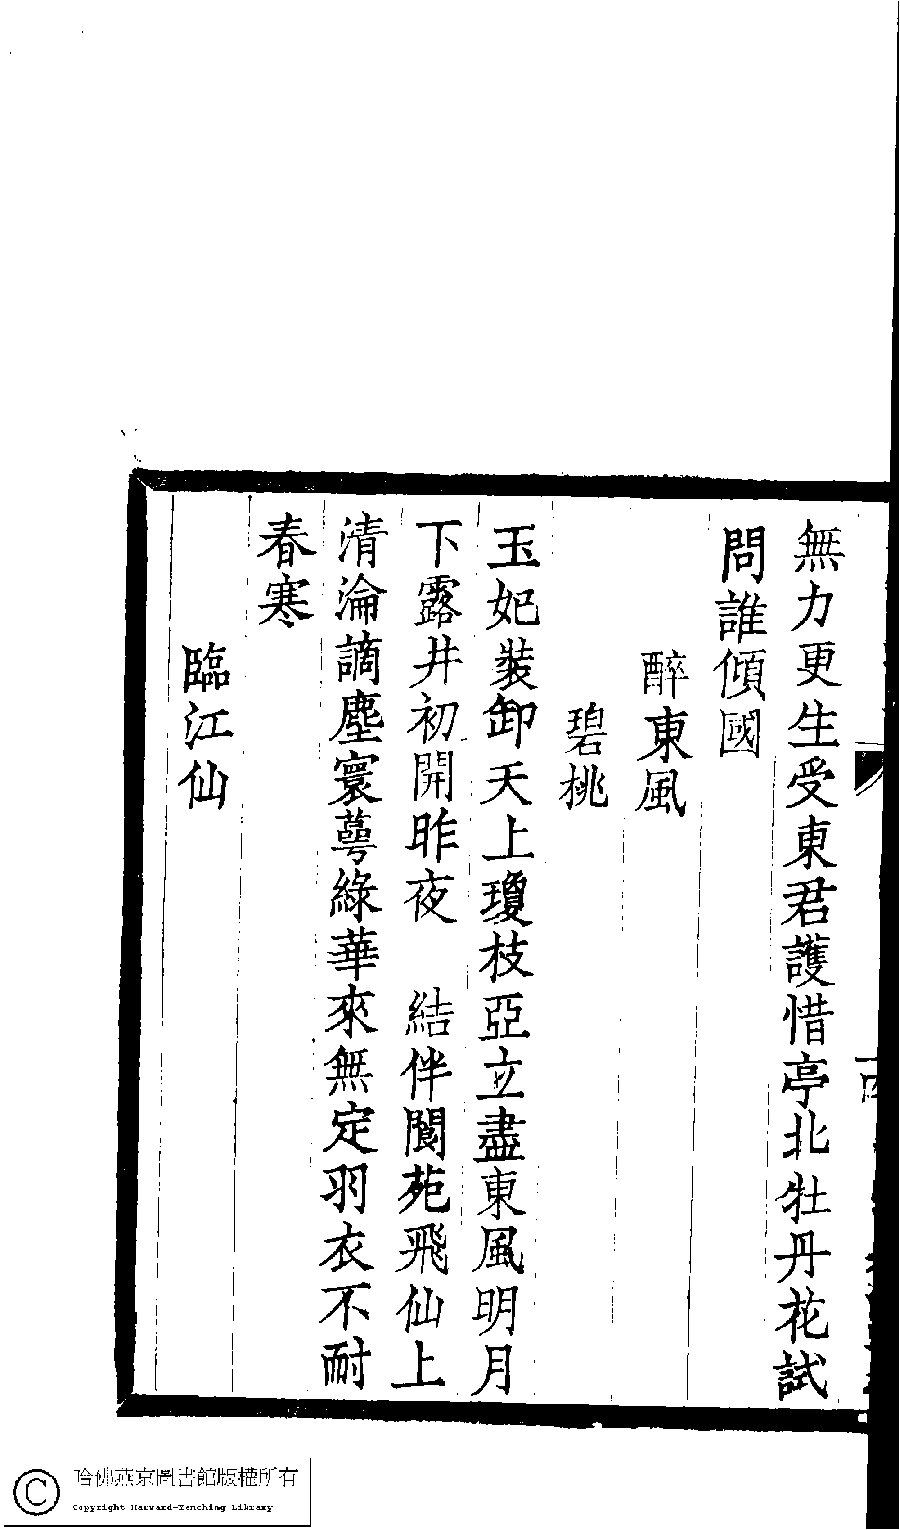 無力更生受東君護惜亭北牡丹花試
問誰傾國
醉東風
碧桃
玉妃裝卸天上瓊枝亞立盡東風明月
下露井初開昨夜　結伴閬苑飛仙上
清淪謫塵寰萼綠華來無定羽衣不耐
春寒
臨江仙
哈佛燕京圖書館版權所有
Copyright Harvard-Yenching Library